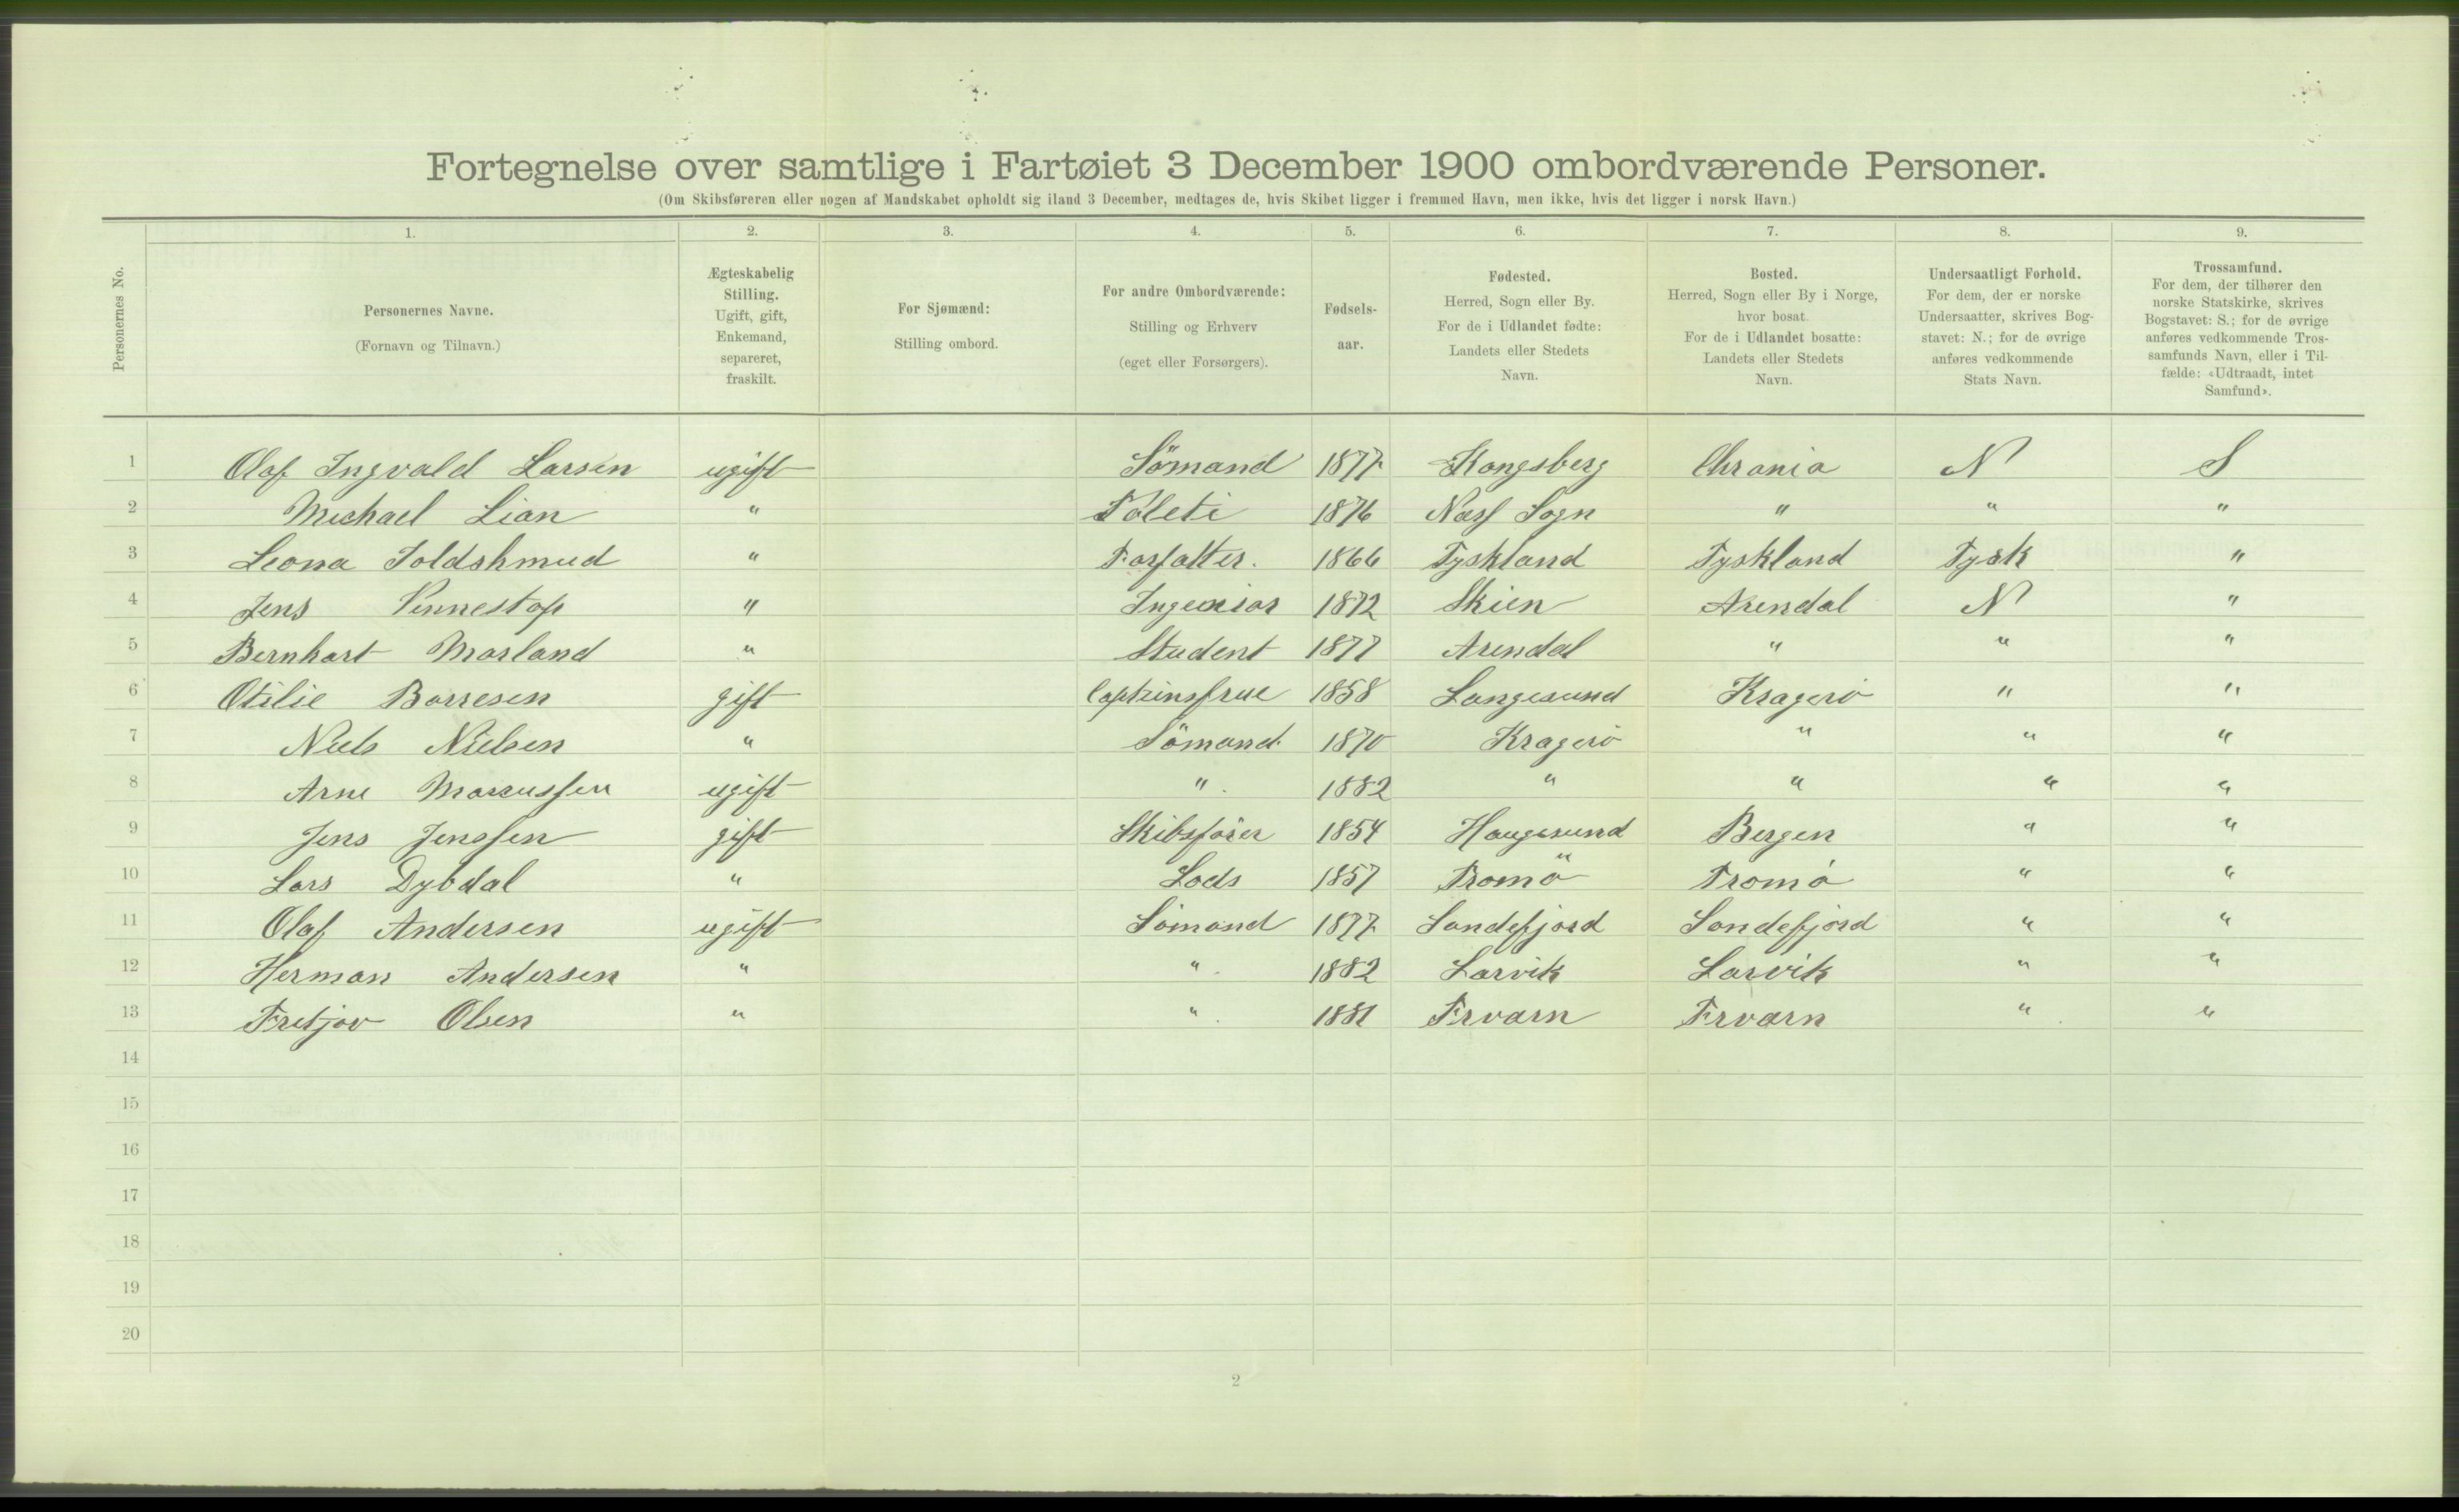 Fortegnelse over samtlige i Fartøiet 3 December 1900 ombordværende Personer.
(Om Skibsføreren eller nogen af Mandskabet opholdt sig iland 3 December, medtages de, hvis Skibet ligger i fremmed Havn, men ikke, hvis det ligger i norsk Havn.)
1. 2. 3. 4. 5. 6. 7. 8. 9.
Personernes No.
Personernes Navne.
(Fornavn og Tilnavn.)
Ægteskabelig
Stilling.
Ugift, gift,
Enkemand,
separeret,
fraskilt.
For Sjømænd:
Stilling ombord.
For andre Ombordværende:
Stilling og Erhverv
(eget eller Forsørgers).
Fødsels-
aar.
Fødested.
Herred, Sogn eller By.
For de i Udlandet fødte:
Landets eller Stedets
Navn.
Bosted.
Herred, Sogn eller By i Norge,
hvor bosat.
For de i Udlandet bosatte:
Landets eller Stedets
Navn.
Undersaatligt Forhold.
For dem, der er norske
Undersaatter, skrives Bog-
stavet: N.; for de øvrige
anføres vedkommende
Stats Navn.
Trossamfund.
For dem, der tilhører den
norske Statskirke, skrives
Bogstavet: S.; for de øvrige
anføres vedkommende Tros-
samfunds Navn, eller i Til-
fælde: «Udtraadt, intet
Samfund».
1 Olaf Ingvald Larsen ugift Sömand 1877 Kongsberg Chrania N S
2 Michael Lian " 1876 Næss Sogn " " "
3 Leona Goldshmud " Forfatter. 1866 Tyskland Tyskland Tysk "
4 Jens Vennestop " Ingeniør 1872 Skien Arendal N "
5 Bernhart Morland " Student 1877 Arendal " " "
6 Otilie Borresen gift Capteinsfrue 1858 Langesund Kragerö " "
7 Niels Nielsen " Sömand 1870 Kragerö " " "
8 Arne Marcussen ugift " 1882 " " " "
9 Jens Jenssen gift Skibsförer 1854 Haugesund Bergen " "
10 Lars Dybdal " Lods 1857 Tromö Tromö " "
11 Olaf Andersen ugift Sömand 1877 Sandefjord Sandefjord " "
12 Herman Andersen " " 1882 Larvik Larvik " "
13 Fretjov Olsen " " 1881 "  "
14
15
16
17
18
19
20
2